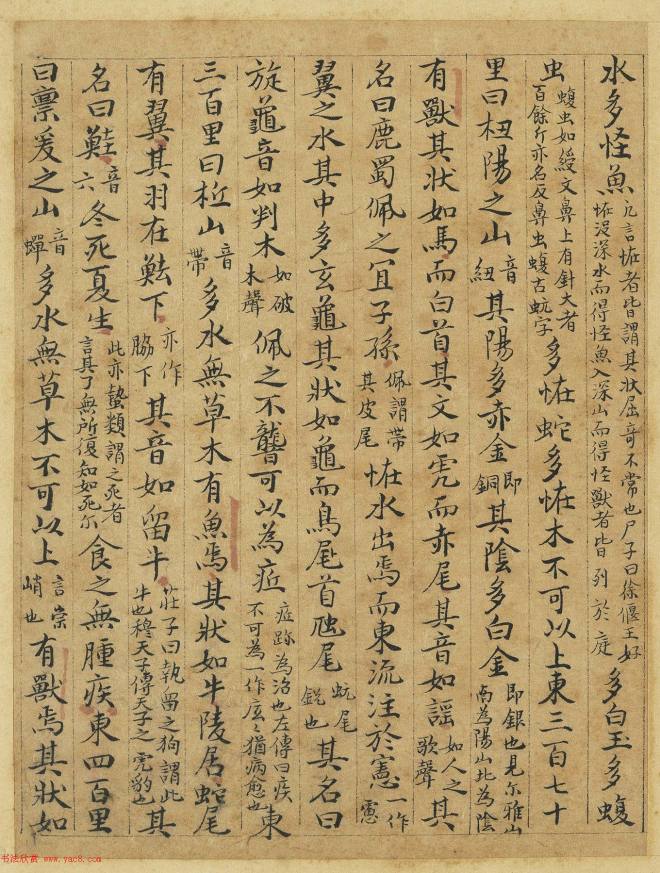 水多怪魚凡言恠者皆謂其狀屈奇不常也尸子曰徐偃王好恠沒深水而得怪魚入深山而得怪獸者皆列於庭多白玉多蝮
虫蝮虫如綬文鼻上有針大者百餘斤亦名反鼻虫蝮古虺字多恠蛇多恠木不可以上東三百七十
里曰杻陽之山音紐其陽多赤金即銅其陰多白金即銀也見尒雅山南為陽山北為陰
有獸其狀如馬而白首其文如虎而赤尾其音如謡如人之歌聲其
名曰鹿蜀佩之宜子孫佩謂帶其皮尾恠水出焉而東流注於憲一作
翼之水其中多玄龜其狀如龜而鳥尾首虺尾虺尾銳也其名曰
旋龜音如判木如破木聲佩之不聾可以為疷疷跡為治也左傳曰疾不可為一作〻猶病愈也東
三百里曰柢山音帶多水無草木有魚焉其狀如牛陵居蛇尾
有翼其羽在魼下亦作脇下其音如留牛莊子曰執留之狗謂此牛也穆天子傳天子之虎豹也其
名曰鯥音六冬死夏生此亦蟄類謂之死者言其了無所復知如死尒食之無腫疾東四百里
曰亶爰之山音蟬多水無草木不可以上言崇峭也有獸焉其狀如
书法欣赏 www.yac8.com